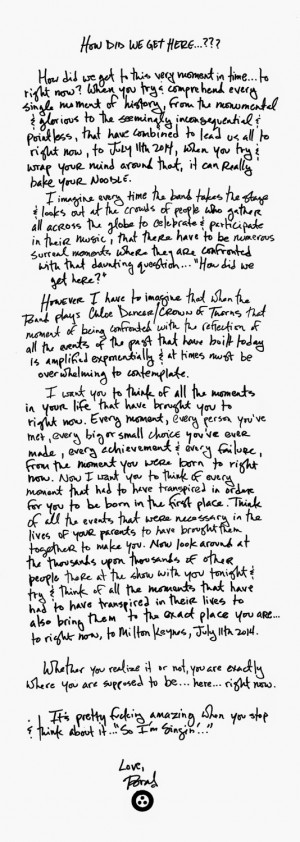 HOW DID WE GET HERE...???
How did we get to this very moment in time...to
right now? When you try & comprehend every
single moment of history, from the monumental
& glorious to the seemingly inconsequential &
pointless, that have combined to lead us all to
right now, to July 11th 2014, when you try &
wrap your mind around that, it can Really
bake your Noodle.
I imagine every time the band takes the stage
& looks out at the crowds of people who gather
all across the globe to celebrate & participate
in their music, that there have to be numerous
surreal moments where they are confronted
with that daunting question..."How did we
get here?"
However I have to imagine that when the
Band plays Chloe Dancer/Crown of Thorns that
moment of being confronted with the reflection of
all the events of the past that have built today
is amplified exponentially & at times must be
overwhelming to contemplate.
I want you to think of all the moments
in your life that have brought you to
right now. Every moment, every person you've
met, every big or small choice you've ever
made, every achievement & every failure,
from the moment you were born to right
now. Now I want you to think of every
moment that had to have transpired in order
for you to be born in the first place. Think
of all the events that were necessary in the
lives of your parents to have brought them
together to make you. Now look around at
the thousands upon thousands of other
people there at the show with you tonight &
try & think of all the moments that have
had to have transpired in their lives to
also bring them to the exact place you are...
to right now, to Milton Keynes, July 11th 2014.
Whether you realize it or not, you are exactly
where you are supposed to be... here... right now.
It's pretty fucking amazing when you stop
& think about it..."So I'm Singin'..."
Love,